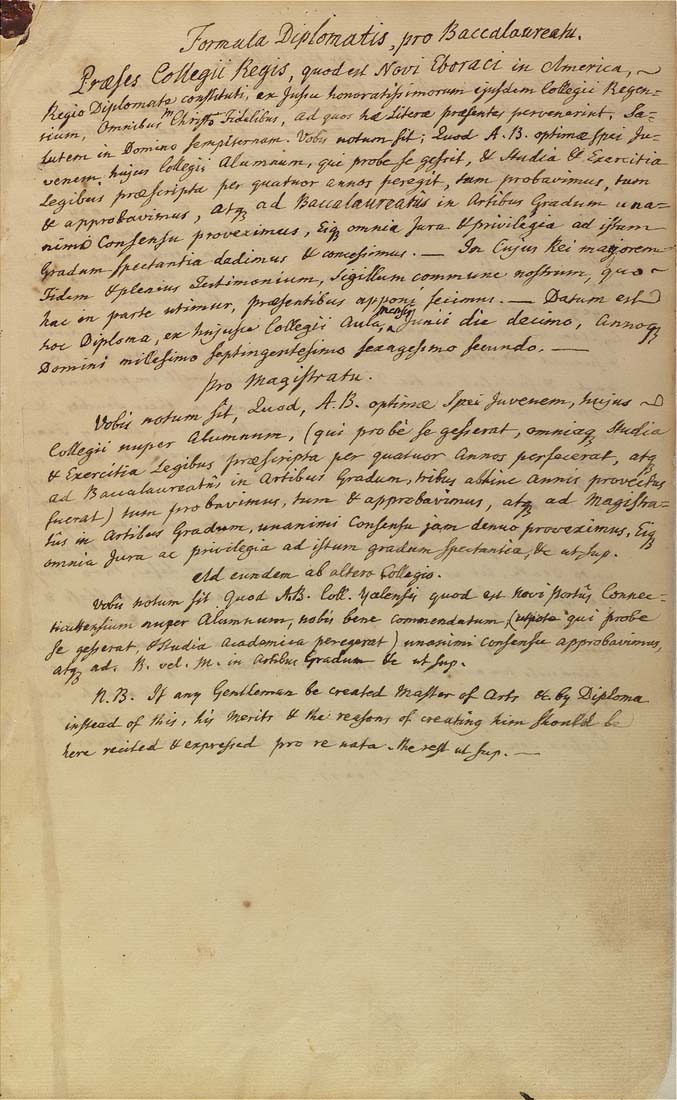 Formula Diplomatis, pro Baccalaureatu.
Præses Collegii Regis, quod est Novi Eboraci in America, ~
Regio Diplomate constituti, ex Jussu honoratissimorum ejusdem Collegii Regen=
tium, Omnibus in Christo Fidelibus, ad quos hæ Literæ præsentes pervenerint, Sa=
lutem in Domino sempiternam. Vobis notum sit; Quod A.B. optimæ spei Ju=
venem, hujus Collegii Alumnum, qui probe se gessit, & Studia & Exercitia
Legibus præscripta per quatuor annos peregit, tum probavimus, tum
& approbavimus, atq ad Baccalaureatus in Artibus Gradum una=
nimi Consensu proveximus, Eiq omnia Jura & privilegia ad istum
Gradum spectantia dadimus & concessimus. — In Cujus Rei majorem
Fidem & plenius Testimonium, Sigillum commune nostrum, quo ~
hac in parte utimur, præsentibus apponi fecimus. — Datum est
hoc Diploma, ex hujusce Collegii Aula, mensis Junii die decimo, Annoq
Domini millesimo septingentesimo sexagesimo secundo. —
pro Magistratu.
Vobis notum sit, Quod, A.B. optimæ Spei Juvenem, hujus ~
Collegii nuper Alumnum, (qui probè se gesserat, omniaq Studia
& Exercitia Legibus præscripta per quatuor Annos perfecerat, atq
ad Baccalaureatûs in Artibus Gradum, tribus abhinc annis provectus
fuerat) tum probavimus, tum & approbavimus, atq ad Magistra=
tûs in Artibus Gradum, unanimi Consensu jam denuo proveximus, Eiq
omnia Jura ac privilegia ad istum gradum spectantia, &c ut sup.
Ad eundem ab altero Collegio.
Vobis notum sit Quod A.B. Coll. Yalensis quod est Novi Portûs Connec-
ticuttensium nuper Alumnum, nobis bene commendatum, (utpote qui probe
se gesserat, & Studia Academica peregerat) unanimi Consensu approbavimus,
atq ad. B. vel. M. in Artibus Gradum &c ut sup.
N.B. If any Gentleman be created Master of Arts &c. by Diploma
instead of this, his Merits & the reasons of creating him should be
here recited & expressed pro re nata - the rest ut sup. —